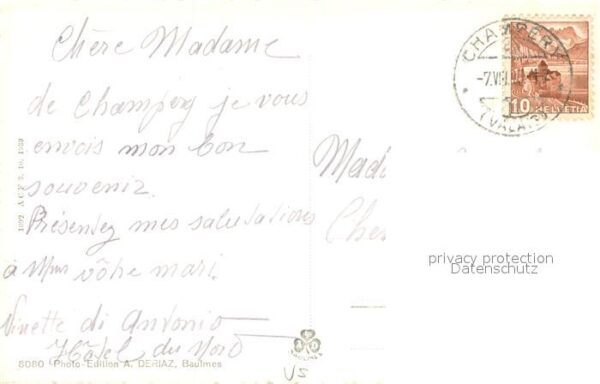 Chère Madame
de Champéry je vous
envois mon bon
souvenir.
Présentez mes salutations
à Mr vôtre mari.
Ninette di Antonio
Hôtel du Nord
8080 Photo-Edition A. DERIAZ, Baulmes
Mada
Che
CHAMPÉRY
(VALAIS)
10 HELVETIA
privacy protection
Datenschutz
BAULMES
VS